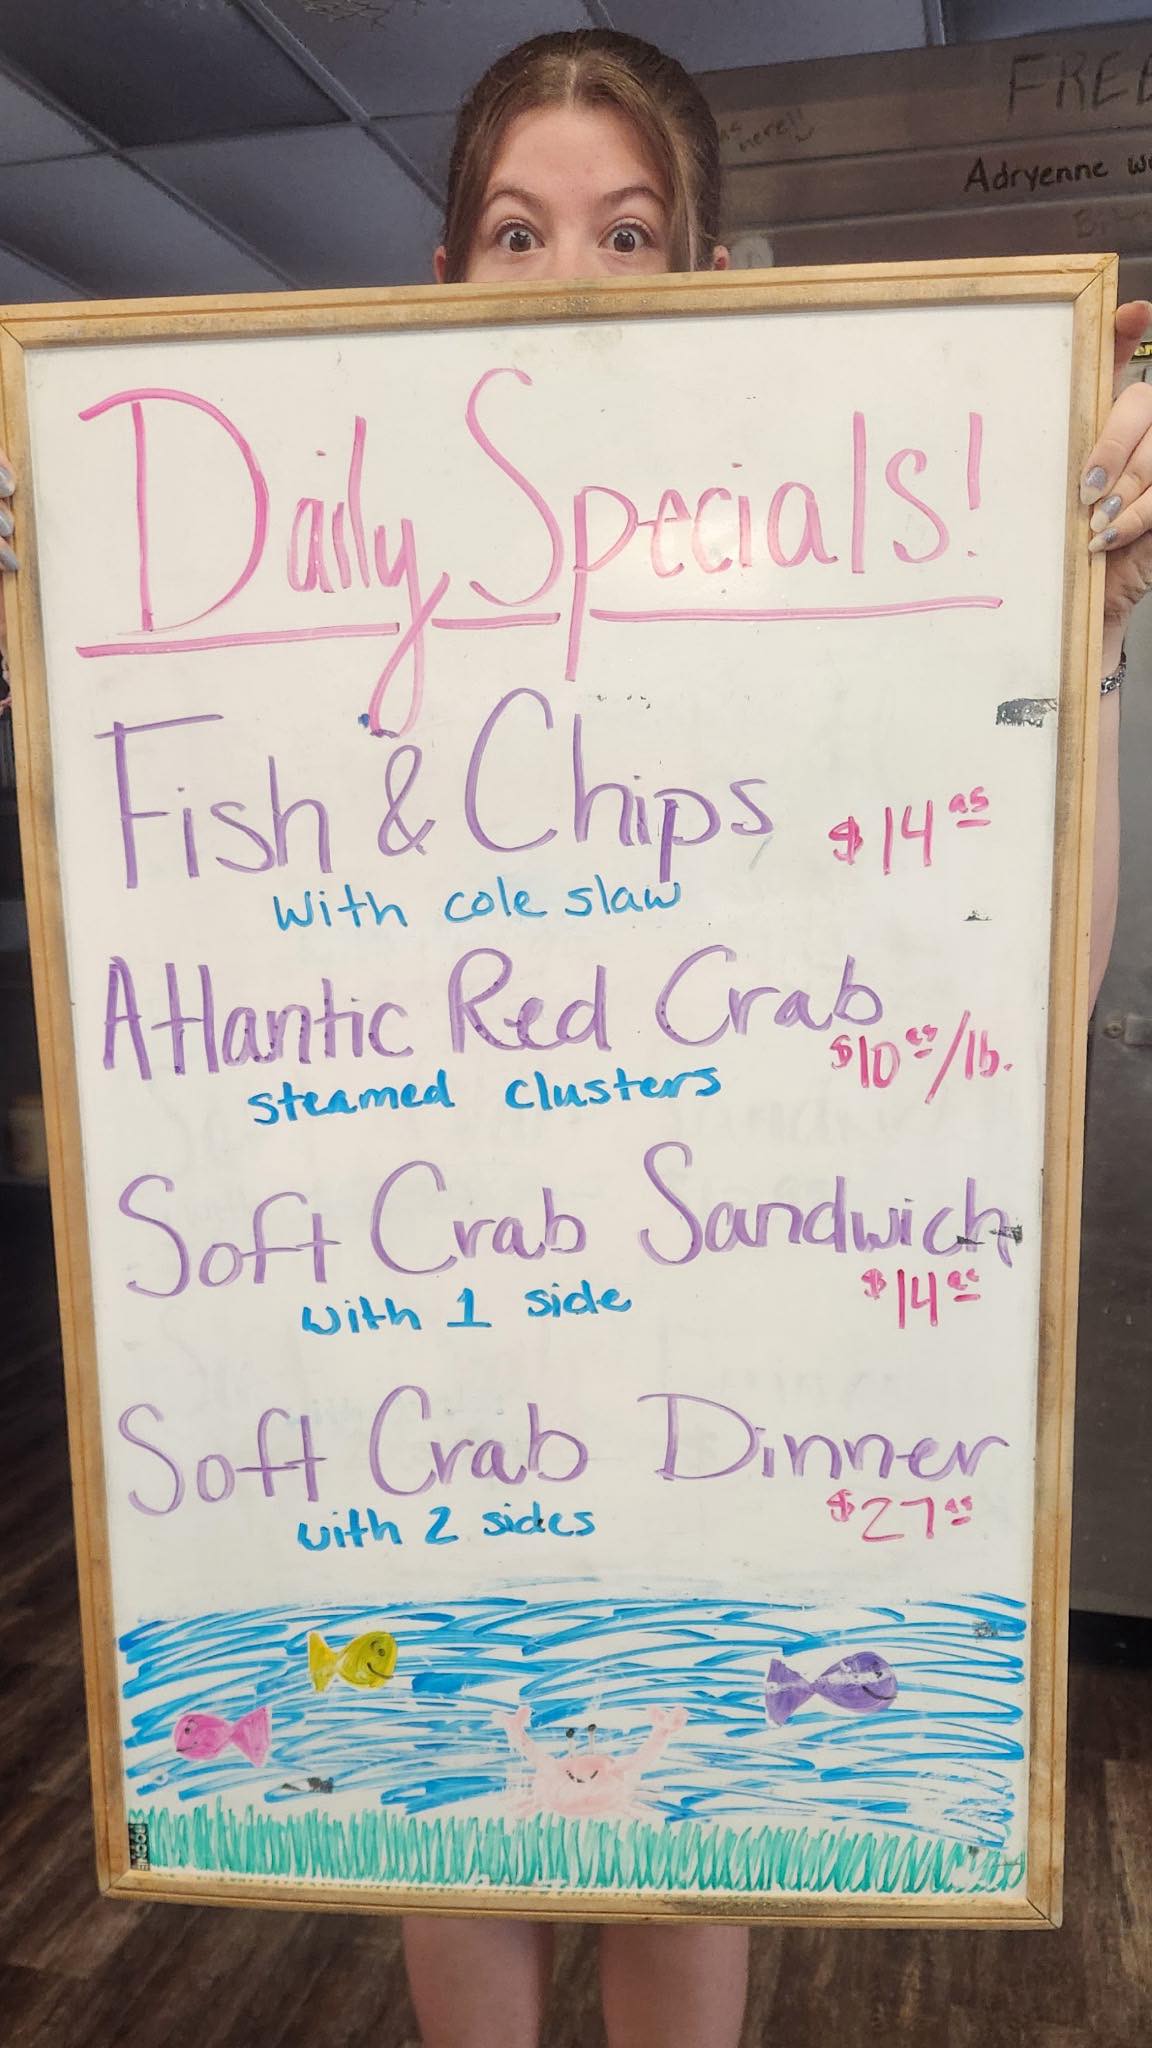 FREE
Adryenne
here!!
Daily Specials!
Fish & Chips $14.95
with cole slaw
Atlantic Red Crab
steamed clusters $10.95/lb.
Soft Crab Sandwich
with 1 side $14.95
Soft Crab Dinner
with 2 sides $27.95